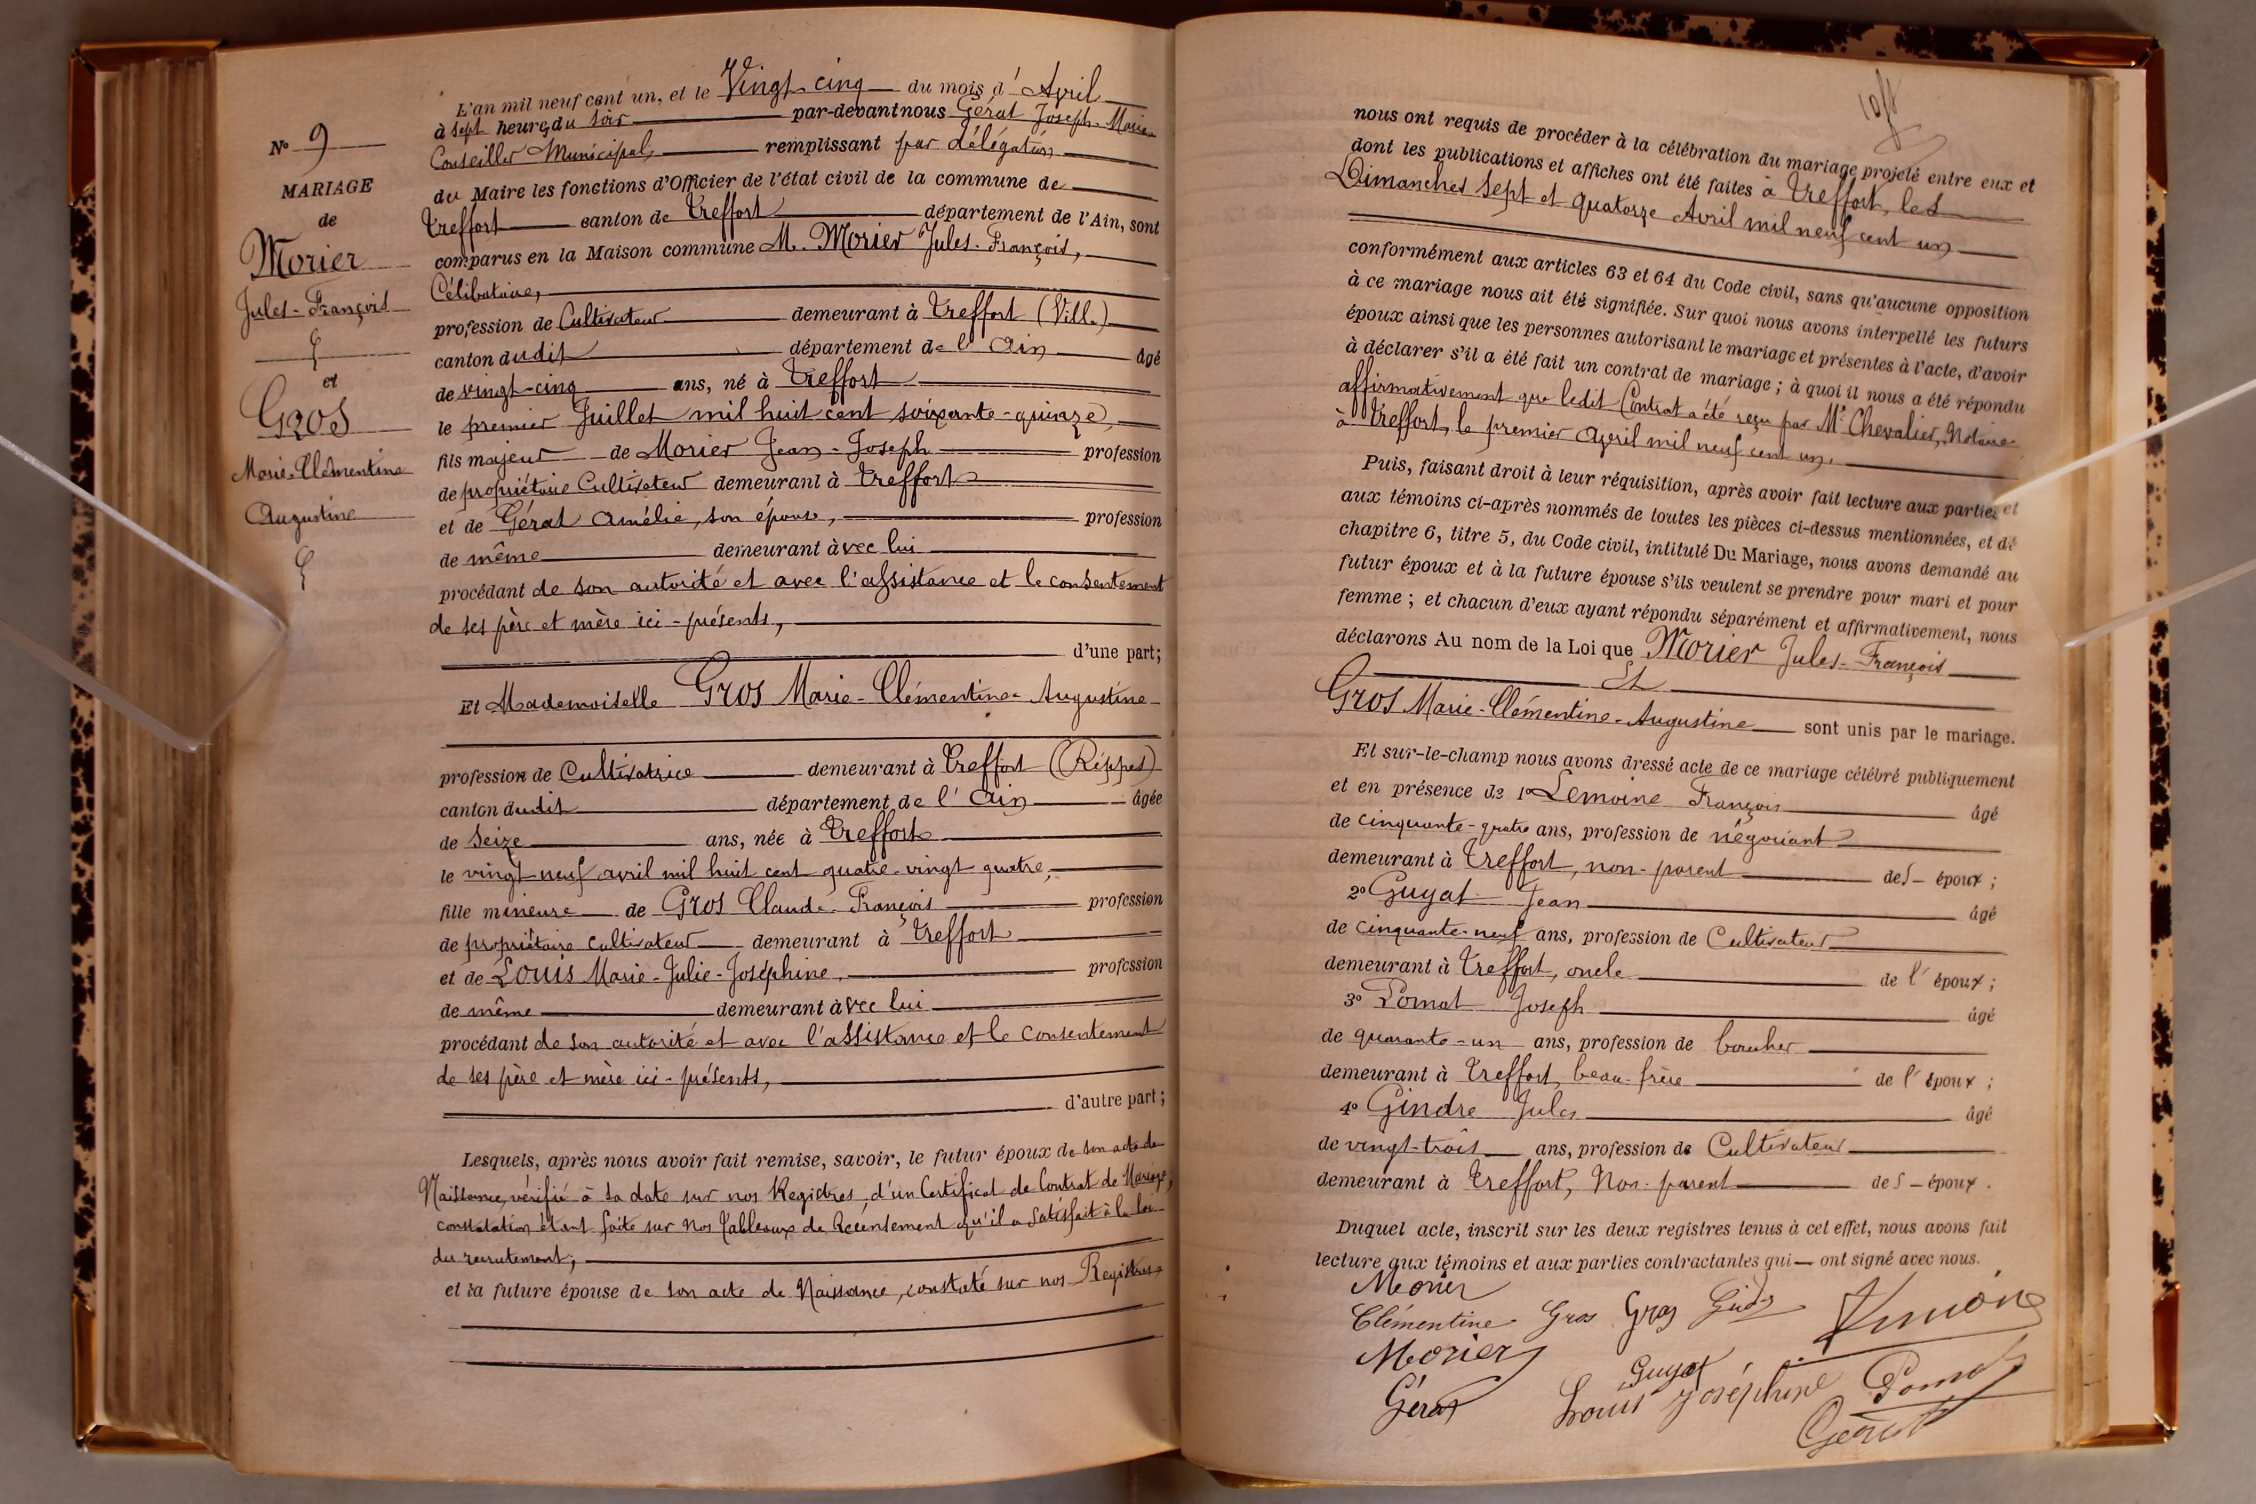 N° 9
MARIAGE
de
Morier
Jules-François
et
Gros
Marie-Clémentine
Augustine
L'an mil neuf cent un, et le Vingt-cinq du mois d'Avril
à sept heures du soir par-devant nous Gérat Joseph-Marie
Conseiller Municipal, remplissant par délégation
du Maire les fonctions d'Officier de l'état civil de la commune de
Treffort canton de Treffort département de l'Ain, sont
comparus en la Maison commune M. Morier Jules-François,
Célibataire,
profession de Cultivateur demeurant à Treffort (Ville)
canton dudit département de l'Ain âgé
de vingt-cinq ans, né à Treffort
le premier Juillet mil huit cent soixante-quinze,
fils majeur de Morier Jean-Joseph profession
de propriétaire Cultivateur demeurant à Treffort
et de Gérat Amélie, son épouse, profession
de même demeurant avec lui
procédant de son autorité et avec l'assistance et le consentement
de ses père et mère ici-présents,
d'une part;
Et Mademoiselle Gros Marie-Clémentine-Augustine
profession de Cultivatrice demeurant à Treffort (Rippes)
canton dudit département de l'Ain âgée
de seize ans, née à Treffort
le vingt-neuf avril mil huit cent quatre-vingt quatre,
fille mineure de Gros Claude-François profession
de propriétaire cultivateur demeurant à Treffort
et de Louis Marie-Julie-Joséphine, profession
de même demeurant avec lui
procédant de son autorité et avec l'assistance et le consentement
de ses père et mère ici-présents,
d'autre part;
Lesquels, après nous avoir fait remise, savoir, le futur époux de son acte de
Naissance, vérifié à sa date sur nos Registres, d'un Certificat de Contrat de Mariage,
constatation étant faite sur nos Tableaux de Recensement qu'il a satisfait à la loi
du recrutement;
et la future épouse de son acte de Naissance, constaté sur nos Registres
nous ont requis de procéder à la célébration du mariage projeté entre eux et
dont les publications et affiches ont été faites à Treffort, les
Dimanches sept et quatorze Avril mil neuf cent un
conformément aux articles 63 et 64 du Code civil, sans qu'aucune opposition
à ce mariage nous ait été signifiée. Sur quoi nous avons interpellé les futurs
époux ainsi que les personnes autorisant le mariage et présentes à l'acte, d'avoir
à déclarer s'il a été fait un contrat de mariage; à quoi il nous a été répondu
affirmativement que ledit Contrat a été reçu par Me Chevalier, Notaire
à Treffort, le premier Avril mil neuf cent un.
Puis, faisant droit à leur réquisition, après avoir fait lecture aux parties et
aux témoins ci-après nommés de toutes les pièces ci-dessus mentionnées, et du
chapitre 6, titre 5, du Code civil, intitulé Du Mariage, nous avons demandé au
futur époux et à la future épouse s'ils veulent se prendre pour mari et pour
femme; et chacun d'eux ayant répondu séparément et affirmativement, nous
déclarons Au nom de la Loi que Morier Jules-François
Et
Gros Marie-Clémentine-Augustine sont unis par le mariage.
Et sur-le-champ nous avons dressé acte de ce mariage célébré publiquement
et en présence de 1° Lemoine François âgé
de cinquante-quatre ans, profession de négociant
demeurant à Treffort, non-parent des époux;
2° Guyat Jean âgé
de cinquante-neuf ans, profession de Cultivateur
demeurant à Treffort, oncle de l'époux;
3° Pomat Joseph âgé
de quarante-un ans, profession de boucher
demeurant à Treffort, beau-frère de l'époux;
4° Gindre Jules âgé
de vingt-trois ans, profession de Cultivateur
demeurant à Treffort, Non-parent des époux.
Duquel acte, inscrit sur les deux registres tenus à cet effet, nous avons fait
lecture aux témoins et aux parties contractantes qui ont signé avec nous.
Morier
Clémentine Gros Gros
Morier Guyat
Gérat Louis Joséphine Pomat